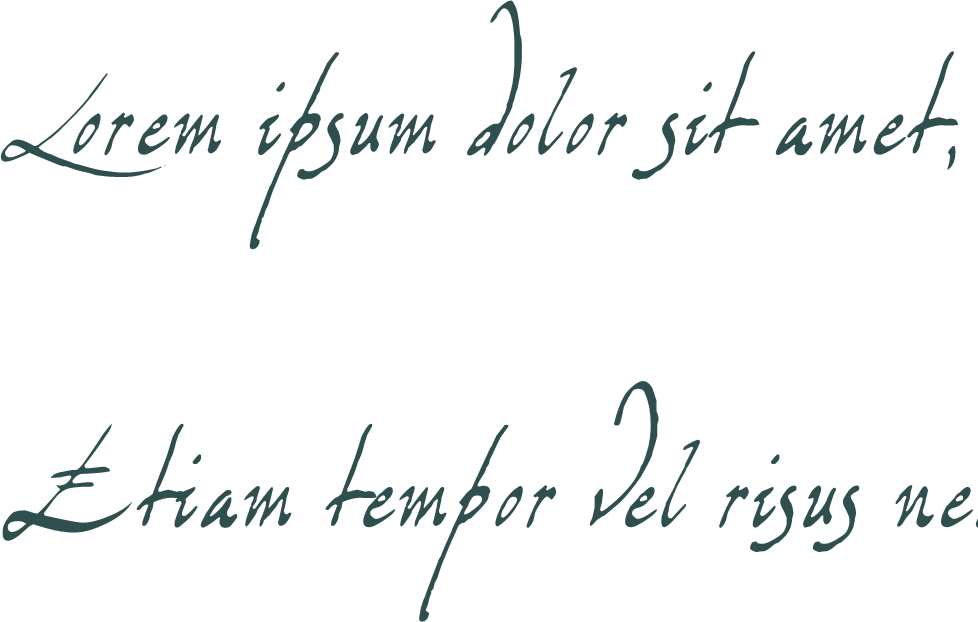 Lorem ipsum dolor sit amet,
Etiam tempor vel risus